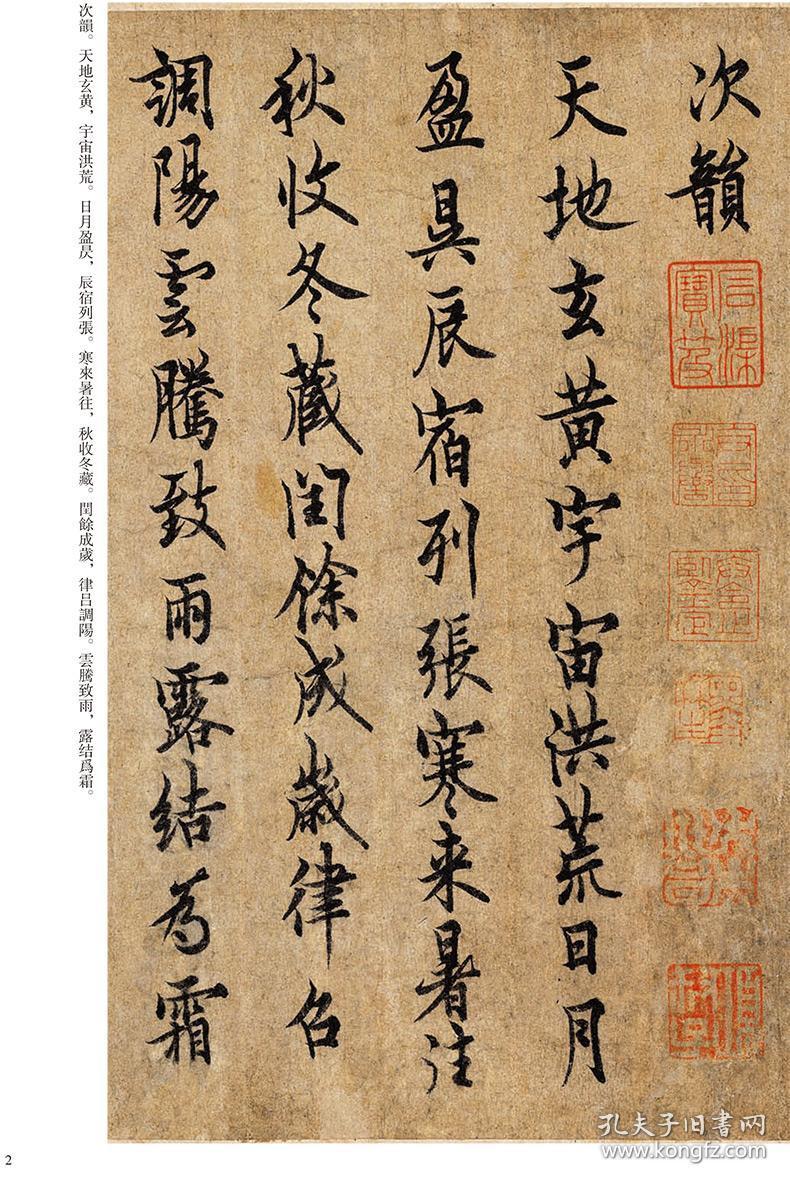 次韻
天地玄黄宇宙洪荒日月
盈昃辰宿列張寒来暑往
秋收冬藏閏餘成歲律吕
調陽雲騰致雨露结為霜
次韻。天地玄黄，宇宙洪荒。日月盈昃，辰宿列張。寒來暑往，秋收冬藏。閏餘成歲，律吕調陽。雲騰致雨，露结爲霜。
2
孔夫子旧书网
www.kongfz.com